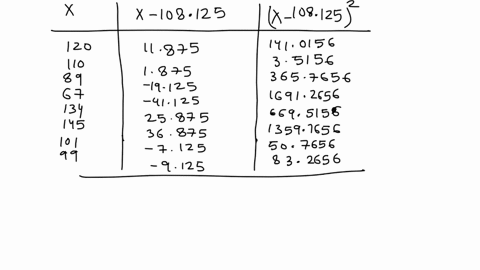 X X-108.125 (X-108.125)²
120 11.875 141.0156
110 1.875 3.5156
89 -19.125 365.7656
67 -41.125 1691.2656
134 25.875 669.5156
145 36.875 1359.7656
101 -7.125 50.7656
99 -9.125 83.2656